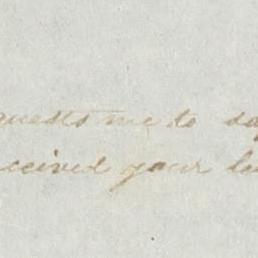 quests me to say
eceived your le